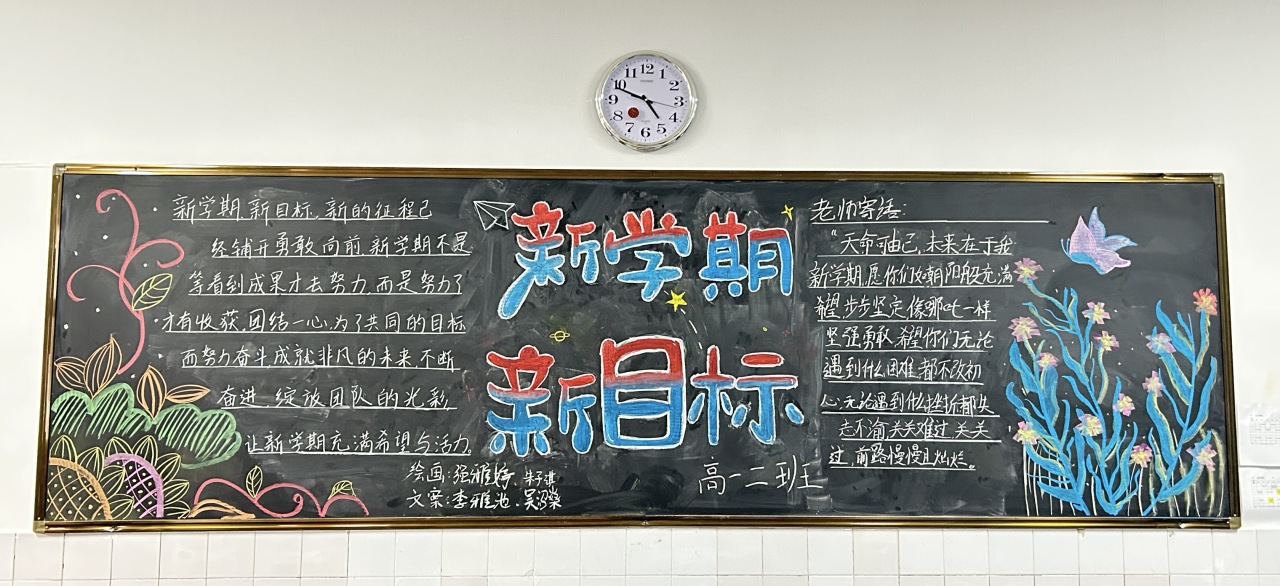 12
1
2
3
4
5
6
7
8
9
10
11
新学期,新目标,新的征程已
经铺开勇敢向前,新学期不是
等看到成果才去努力,而是努力了
才有收获,团结一心,为了共同的目标
而努力奋斗,成就非凡的未来,不断
奋进,绽放团队的光彩,
让新学期充满希望与活力。
绘画:
文案:李雅池、
新学期
新目标
高一二班
老师寄语:
"天命可由己,未来在于我
新学期,愿你们如朝阳般充满
希望,步步坚定,像哪吒一样
坚强勇敢,希望你们无论
遇到什么困难,都不改初
心,无论遇到什么挫折都矢
志不渝,关关难过,关关
过,前路慢慢且灿烂。